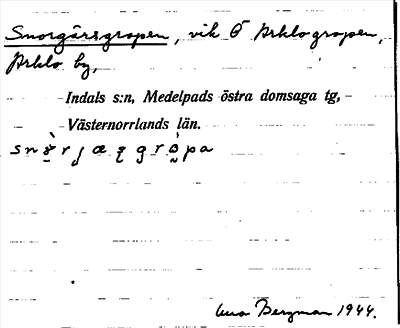 Snorgärsgropen, vik Ö Arklogropen,
Arklo by,
Indals s:n, Medelpads östra domsaga tg,
Västernorrlands län.
Bergman 1944.